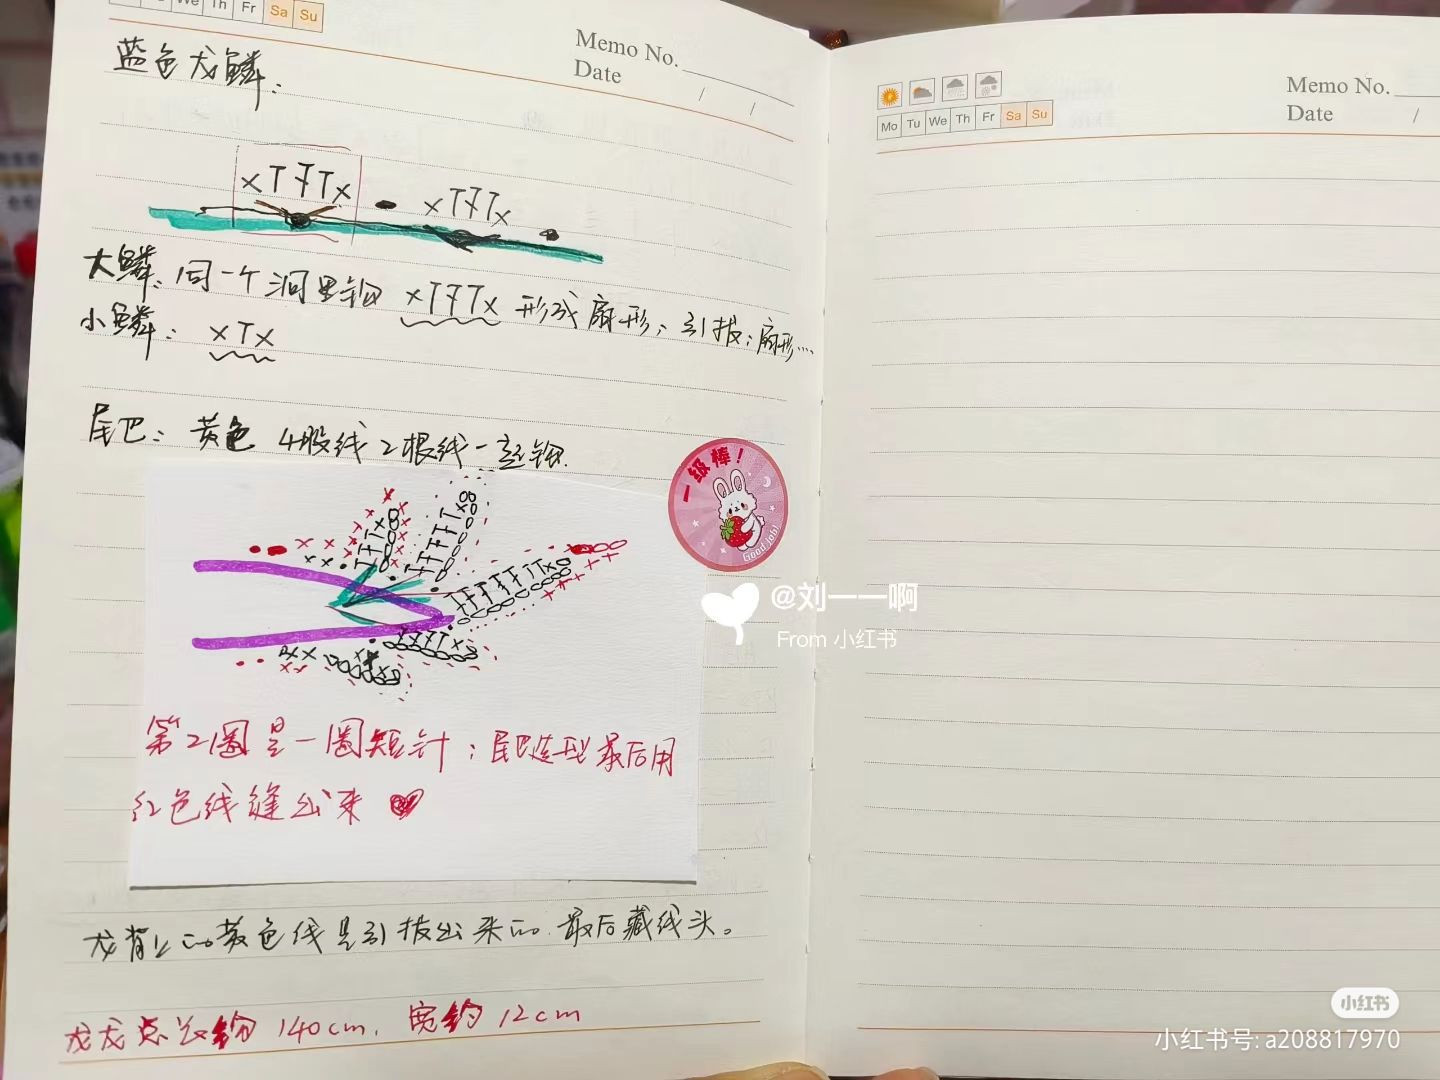 We Th Fr Sa Su
Memo No.
Date / /
蓝色龙鳞:
xTFTx • xTFTx •
大鳞: 同一个洞里钩 xTFTx 形成扇形; 引拔; 扇形...
小鳞: xTx
尾巴: 黄色 4股线 2根线一起钩.
一级棒!
Good job!
第2圈是一圈短针; 尾巴造型最后用
红色线缝出来
龙背上的黄色线是引拔出来的. 最后藏线头。
龙龙总长约 140cm. 宽约 12cm
Mo Tu We Th Fr Sa Su
Memo No.
Date /
@刘一一啊
From 小红书
小红书
小红书号: a208817970